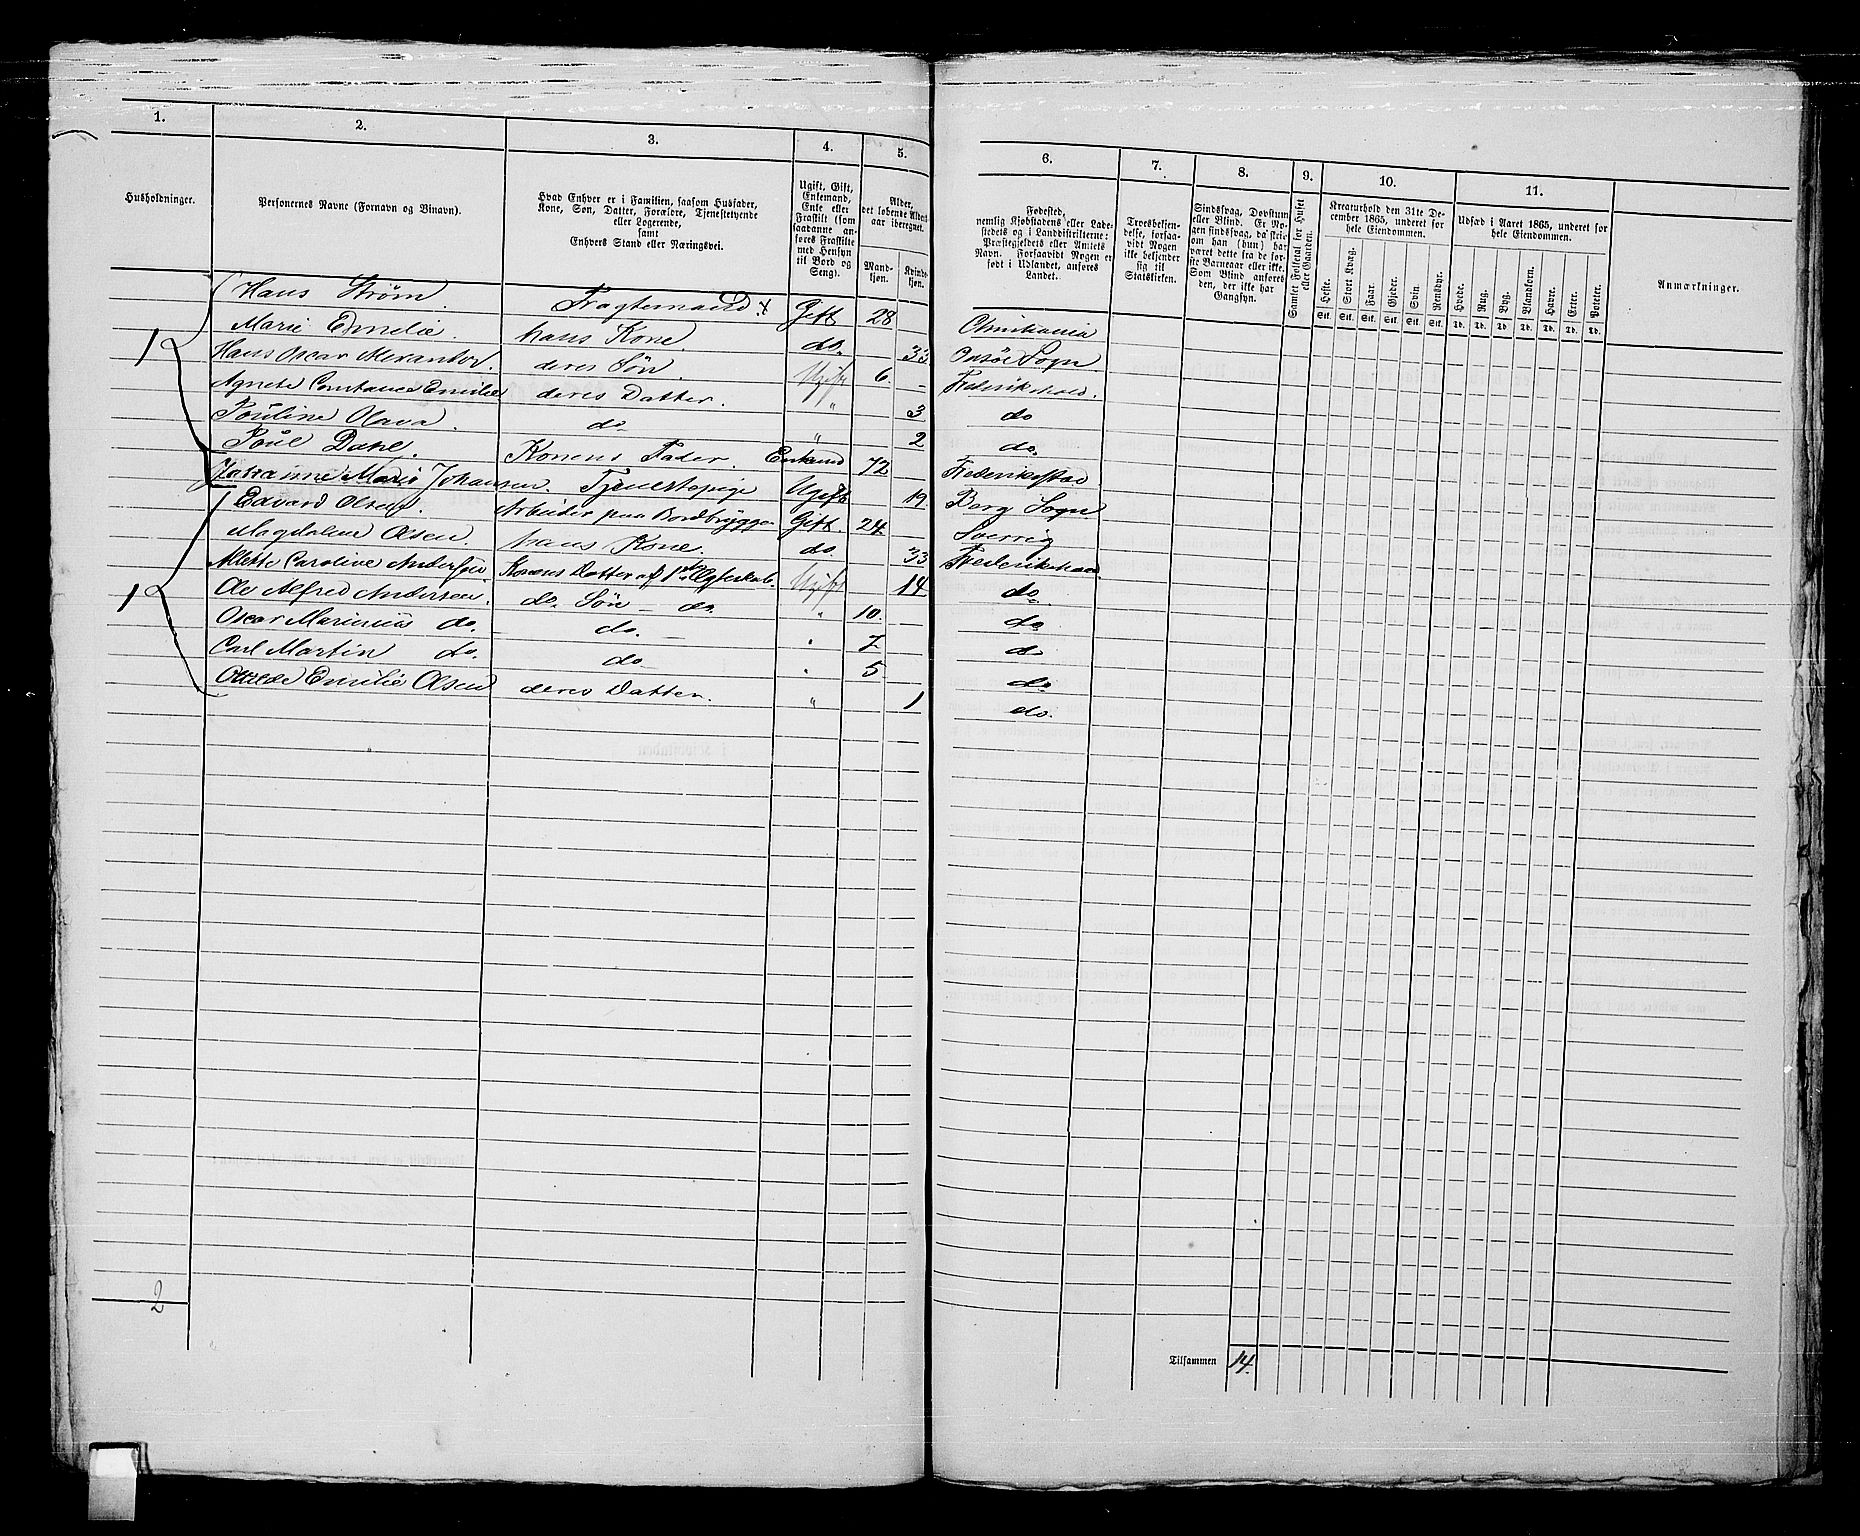 1.
2.
3.
4.
5.
Husholdninger.
Personernes Navne (Fornavn og Binavn).
Hvad Enhver er i Familien, saasom Husfader,
Kone, Søn, Datter, Forældre, Tjenestetyende
eller Logerende,
samt
Enhvers Stand eller Næringsvei.
Ugift, Gift,
Enkemand,
Enke eller
Fraskilt (som
saadanne an-
føres Fraskilte
med Hensyn
til Bord og
Seng).
Alder,
det løbende Alders-
aar iberegnet.
Mand-
kjøn.
Kvinde-
kjøn.
6.
7.
8.
9.
10.
11.
Fødested,
nemlig Kjøbstadens eller Lade-
stedets og i Landdistrikterne:
Præstegjeldets eller Amtets
Navn. Forsaavidt Nogen er
født i Udlandet, anføres
Landet.
Troesbekjen-
delse, forsaa-
vidt Nogen
ikke bekjender
sig til
Statskirken.
Sindssvag, Døvstum
eller Blind. Er No-
gen sindssvag, da skri-
ves om han (hun) har
været dette fra de før-
ste Barneaar eller ikke.
Som Blind anføres
den, der ikke har
Gangsyn.
Samlet Folketal for Huset
eller Gaarden.
Kreaturhold den 31te De-
cember 1865, underet for
hele Eiendommen.
Heste. Stort Kvæg. Faar. Gjeder. Svin. Rensdyr.
Stk. Stk. Stk. Stk. Stk. Stk.
Udsæd i Aaret 1865, underet for
hele Eiendommen.
Hvede. Rug. Byg. Blandkorn. Havre. Erter. Poteter.
Td. Td. Td. Td. Td. Td. Td.
Anmærkninger.
1 Hans Strøm. Fragtemand x Gift 28 Christiania
Marie Emelie hans Kone do. 33 Onsøe Sogn
Hans Oscar deres Søn. Ugift 6 Frederikshald.
Agnete Constance Emilie deres Datter. " 3 do
Pouline Olava. do. " 2 do.
Poul Dahl. Konens Fader. Enkemd 72 Frederikstad
Johanne Marie Johansen. Tjenestepige Ugift 19. Berg Sogn
1 Edvard Olsen. Arbeider paa Bordbrygge Gift. 24 Sverrig
Magdalene Olsen. hans Kone. do. 33 Frederikshald
Mette Caroline Andersen. Konens Datter af 1ste Ægteskab. Ugift 14 do.
Ole Alfred Andersen. do. Søn - do. " 10. do
Oscar Marinius do. - do. - " 7 do
Carl Martin do. do. " 5 do
Emilie Olsen deres Datter. " 1 do.
2
Tilsammen 14.